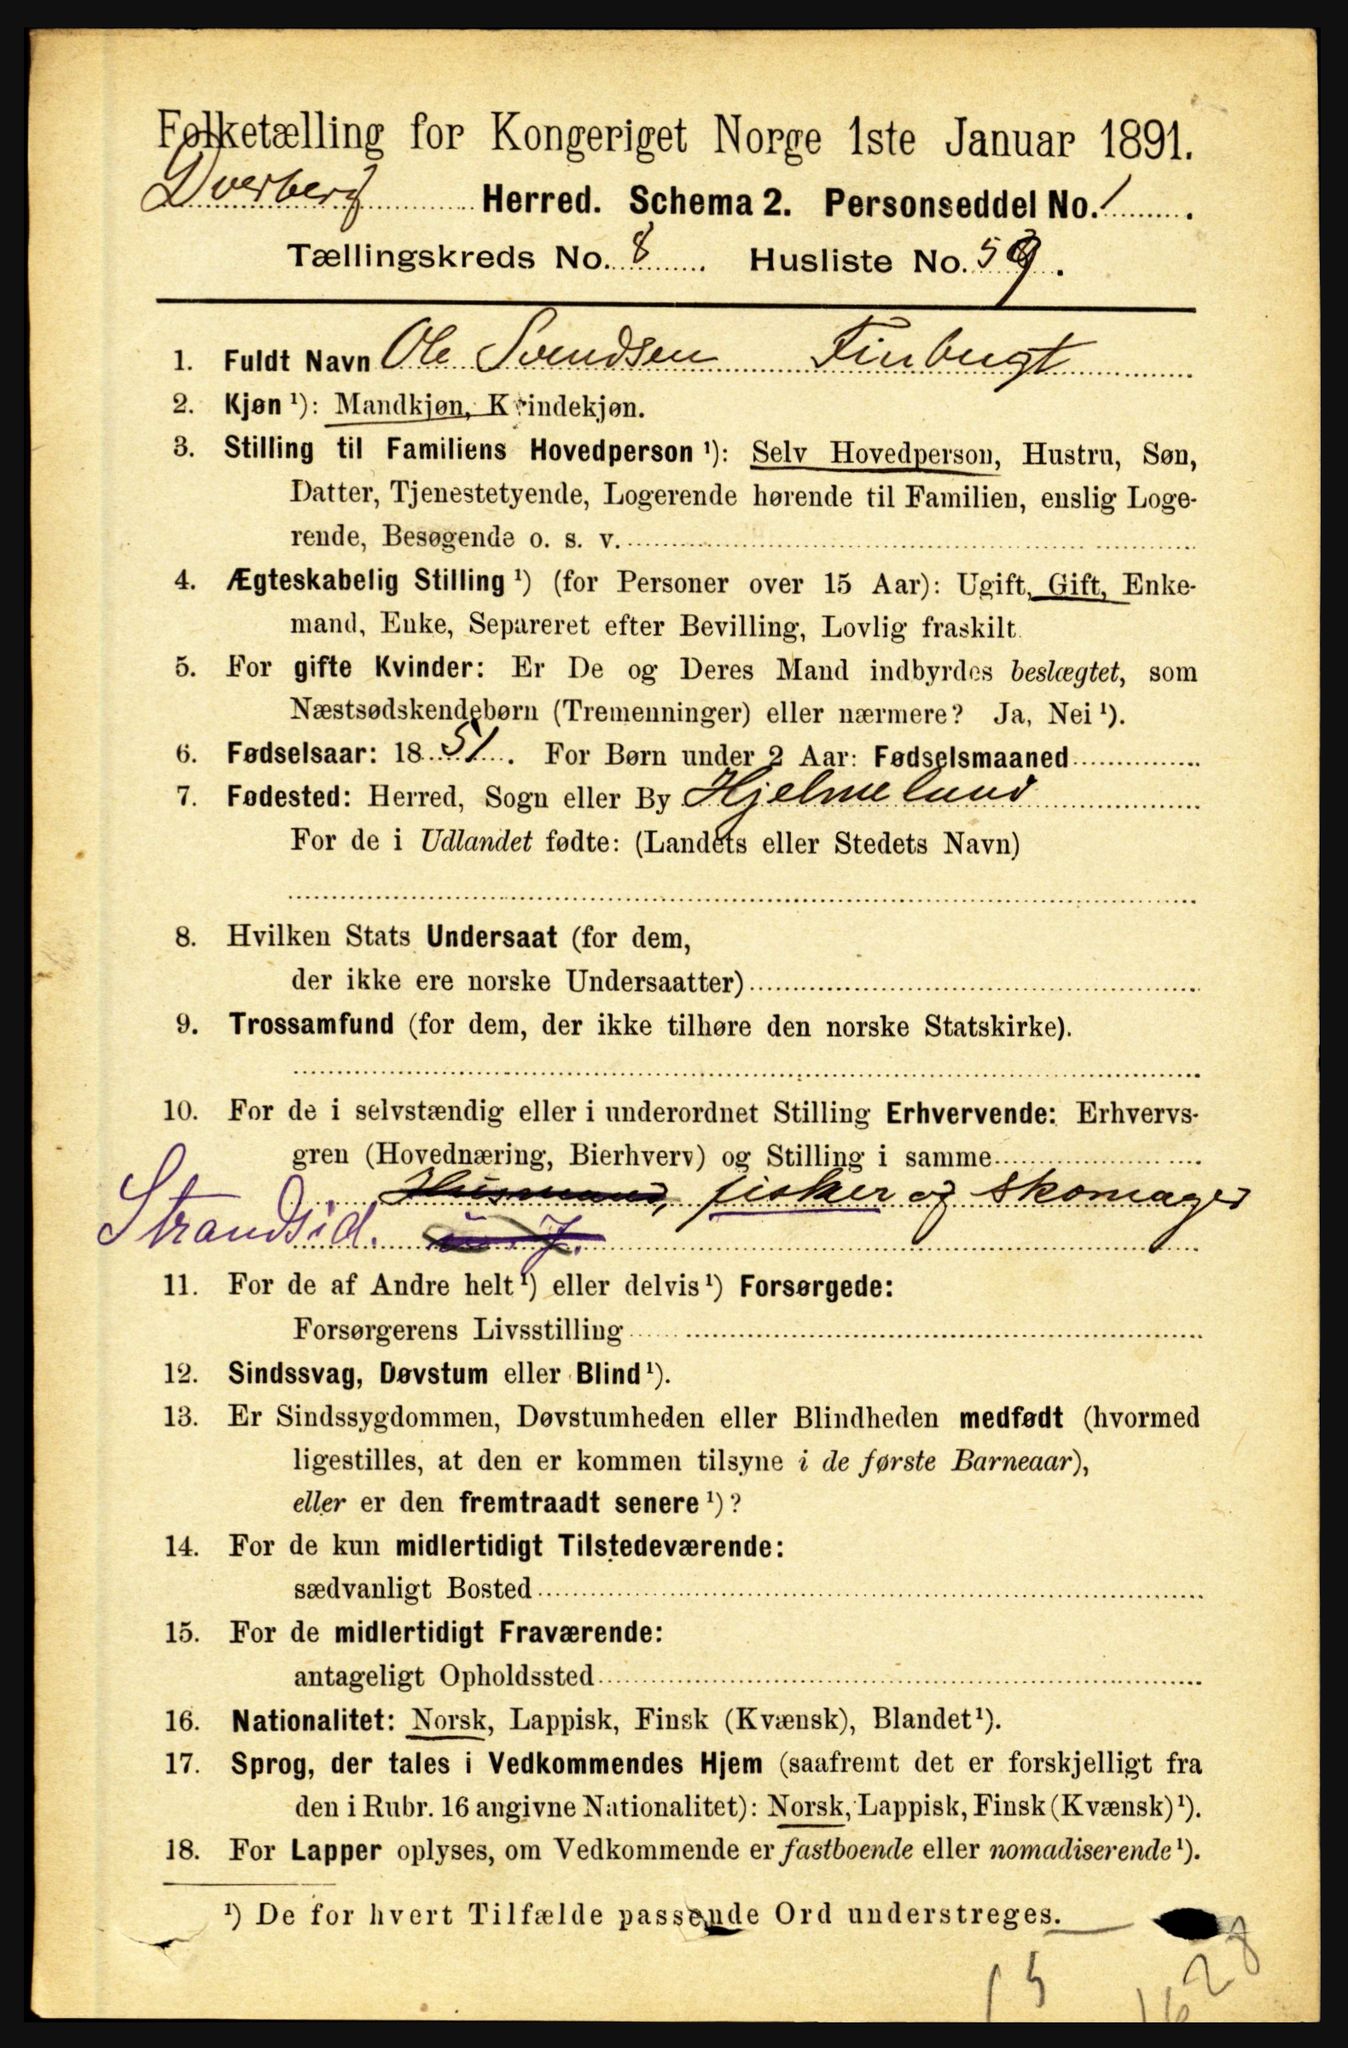 Folketælling for Kongeriget Norge 1ste Januar 1891.
Dverberg Herred. Schema 2. Personseddel No. 1.
Tællingskreds No. 8 Husliste No. 59.
1. Fuldt Navn Ole Svendsen Finbugt
2. Kjøn ¹): Mandkjøn, Kvindekjøn.
3. Stilling til Familiens Hovedperson ¹): Selv Hovedperson, Hustru, Søn,
Datter, Tjenestetyende, Logerende hørende til Familien, enslig Loge-
rende, Besøgende o. s. v.
4. Ægteskabelig Stilling ¹) (for Personer over 15 Aar): Ugift, Gift, Enke-
mand, Enke, Separeret efter Bevilling, Lovlig fraskilt.
5. For gifte Kvinder: Er De og Deres Mand indbyrdes beslægtet, som
Næstsødskendebørn (Tremenninger) eller nærmere? Ja, Nei ¹).
6. Fødselsaar: 1851. For Børn under 2 Aar: Fødselsmaaned
7. Fødested: Herred, Sogn eller By Hjelmelund
For de i Udlandet fødte: (Landets eller Stedets Navn)
8. Hvilken Stats Undersaat (for dem,
der ikke ere norske Undersaatter)
9. Trossamfund (for dem, der ikke tilhøre den norske Statskirke).
10. For de i selvstændig eller i underordnet Stilling Erhvervende: Erhvervs-
gren (Hovednæring, Bierhverv) og Stilling i samme
Husmand, fisker og skomager
Strandsid.
11. For de af Andre helt ¹) eller delvis ¹) Forsørgede:
Forsørgerens Livsstilling
12. Sindssvag, Døvstum eller Blind ¹).
13. Er Sindssygdommen, Døvstumheden eller Blindheden medfødt (hvormed
ligestilles, at den er kommen tilsyne i de første Barneaar),
eller er den fremtraadt senere ¹)?
14. For de kun midlertidigt Tilstedeværende:
sædvanligt Bosted
15. For de midlertidigt Fraværende:
antageligt Opholdssted
16. Nationalitet: Norsk, Lappisk, Finsk (Kvænsk), Blandet ¹).
17. Sprog, der tales i Vedkommendes Hjem (saafremt det er forskjelligt fra
den i Rubr. 16 angivne Nationalitet): Norsk, Lappisk, Finsk (Kvænsk) ¹).
18. For Lapper oplyses, om Vedkommende er fastboende eller nomadiserende ¹).
¹) De for hvert Tilfælde passende Ord understreges.
15 1628